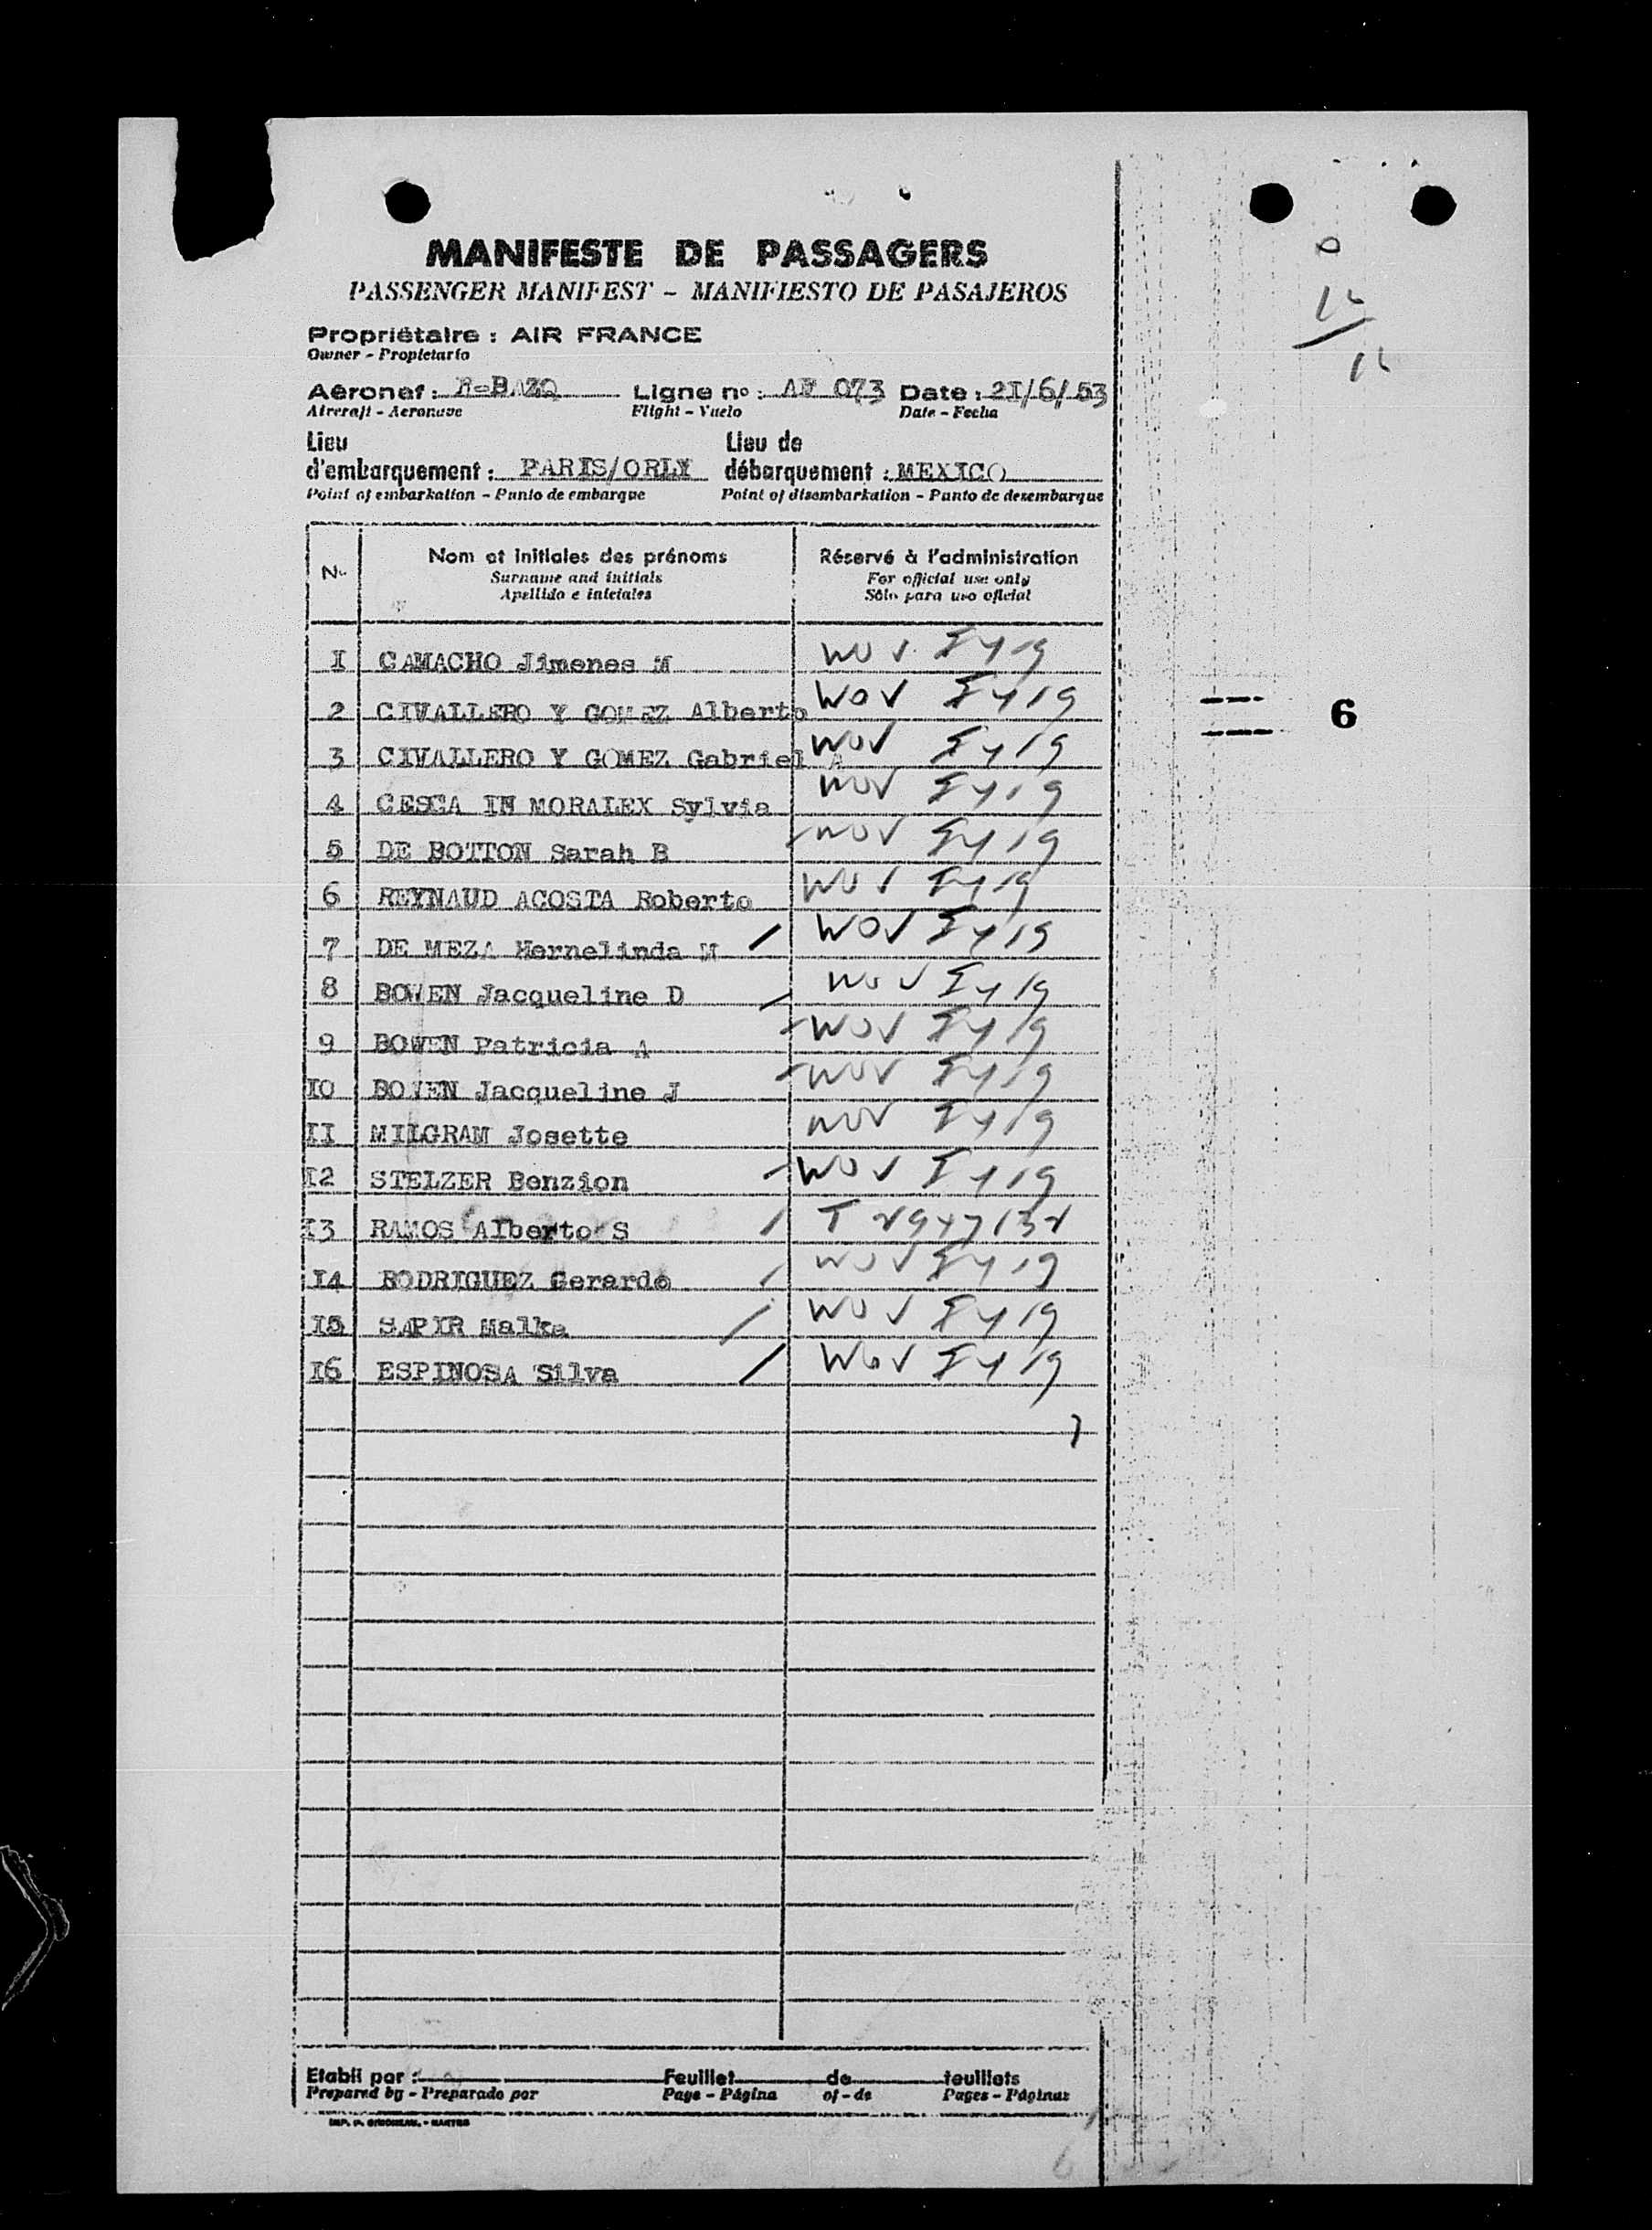 MANIFESTE DE PASSAGERS
PASSENGER MANIFEST – MANIFIESTO DE PASAJEROS
Propriétaire : AIR FRANCE
Owner - Propietario
Aéronef : F-BAZQ Ligne no : AF 073 Date : 2I/6/53
Aircraft - Aeronave Flight - Vuelo Date - Fecha
Lieu d'embarquement : PARIS/ORLY Lieu de débarquement : MEXICO
Point of embarkation - Punto de embarque Point of disembarkation - Punto de desembarque
No Nom et initiales des prénoms Réservé à l'administration
Surname and initials For official use only
Apellido e iniciales Sólo para uso oficial
I CAMACHO Jimenes M WOV
2 CIVALLERO Y GOMEZ Alberto WOV
3 CIVALLERO Y GOMEZ Gabriel A WOV
4 CESCA IN MORALEX Sylvia WOV
5 DE BOTTON Sarah B WOV
6 REYNAUD ACOSTA Roberto WOV
7 DE MEZA Hernelinda M WOV
8 BOWEN Jacqueline D WOV
9 BOWEN Patricia A WOV
IO BOWEN Jacqueline J WOV
II MILGRAM Josette WOV
I2 STELZER Benzion WOV
I3 RAMOS Alberto S
I4 RODRIGUEZ Gerardo WOV
I5 SAPIR Malka WOV
I6 ESPINOSA Silva WOV
6
Etabli par : Feuillet de feuillets
Prepared by - Preparado por Page - Página of - de Pages - Páginas